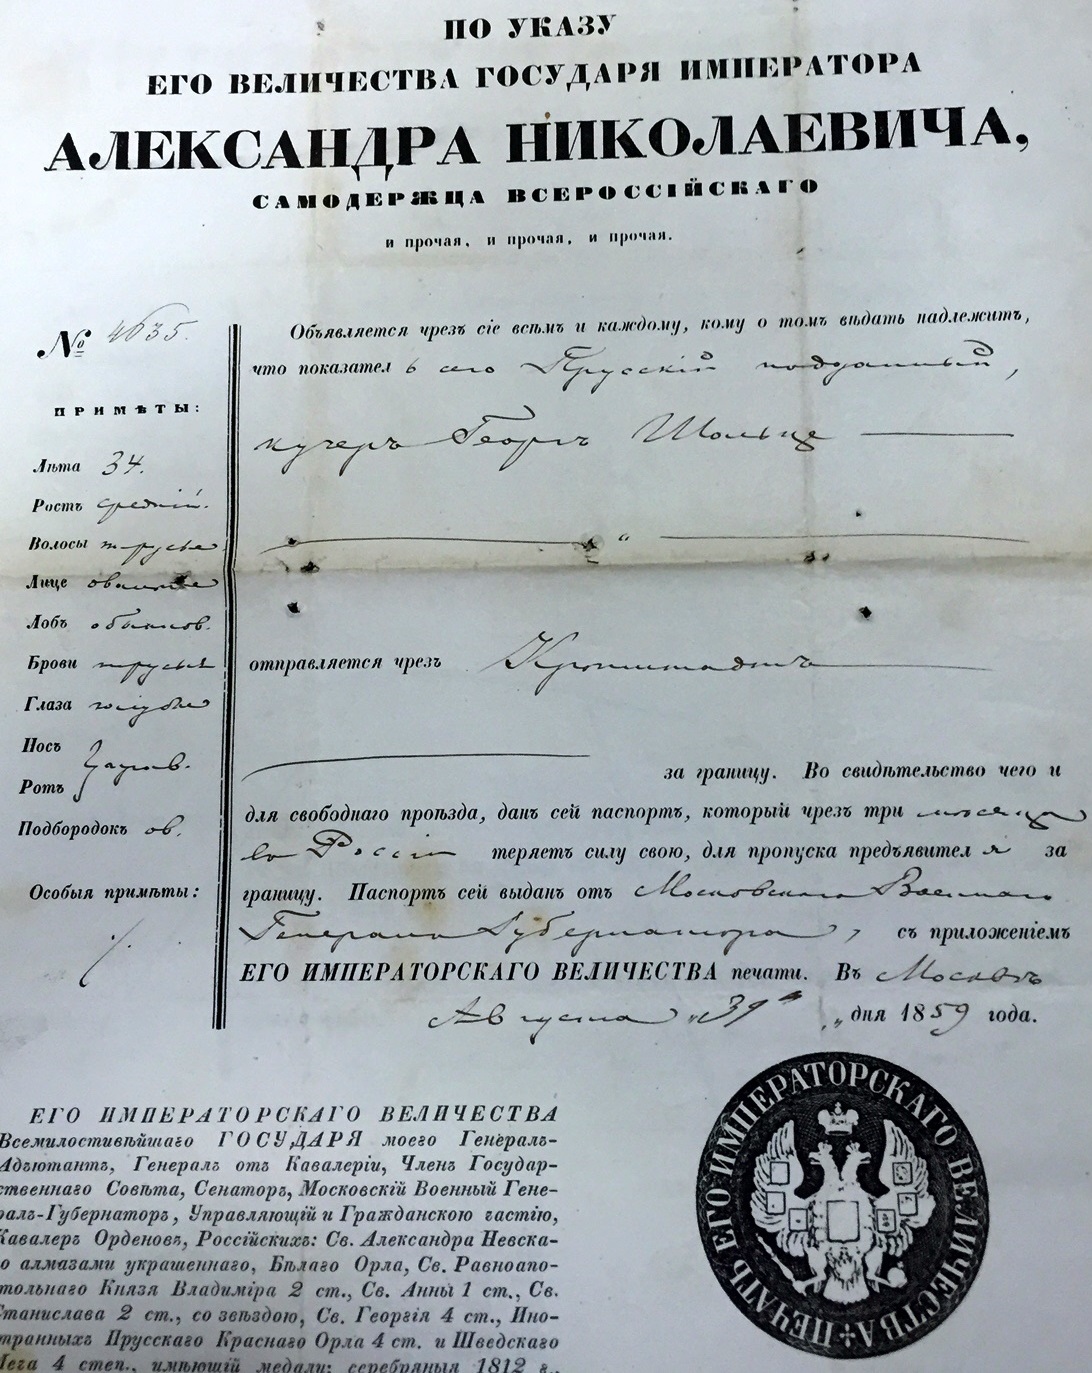 ПО УКАЗУ
ЕГО ВЕЛИЧЕСТВА ГОСУДАРЯ ИМПЕРАТОРА
АЛЕКСАНДРА НИКОЛАЕВИЧА,
САМОДЕРЖЦА ВСЕРОССІЙСКАГО
и прочая, и прочая, и прочая.
№ 4635.
ПРИМѢТЫ:
Лѣта 34.
Ростъ средній.
Волосы т-русые
Лице овальное
Лобъ обыкнов.
Брови т-русыя
Глаза голубые
Носъ
Ротъ
Подбородокъ ов.
Особыя примѣты:
Объявляется чрезъ сіе всѣмъ и каждому, кому о томъ вѣдать надлежитъ,
что показатель сего Прусскій подданный,
кучеръ Георгъ Шольце
отправляется чрезъ Кронштадтъ
за границу. Во свидѣтельство чего и
для свободнаго проѣзда, данъ сей паспортъ, который чрезъ три мѣсяца
въ Россіи теряетъ силу свою, для пропуска предъявителя за
границу. Паспортъ сей выданъ отъ Московскаго Военнаго
Генералъ Губернатора, съ приложеніемъ
ЕГО ИМПЕРАТОРСКАГО ВЕЛИЧЕСТВА печати. Въ Москвѣ
Августа „ „ дня 1859 года.
ЕГО ИМПЕРАТОРСКАГО ВЕЛИЧЕСТВА
Всемилостивѣйшаго ГОСУДАРЯ моего Генералъ-
Адъютантъ, Генералъ отъ Кавалеріи, Членъ Государ-
ственнаго Совѣта, Сенаторъ, Московскій Военный Гене-
ралъ-Губернаторъ, Управляющій и Гражданскою частію,
Кавалеръ Орденовъ, Россійскихъ: Св. Александра Невска-
о алмазами украшеннаго, Бѣлаго Орла, Св. Равноапо-
тольнаго Князя Владиміра 2 ст., Св. Анны 1 ст., Св.
Станислава 2 ст., со звѣздою, Св. Георгія 4 ст., Ино-
странныхъ Прусскаго Краснаго Орла 4 ст. и Шведскаго
Меча 4 степ., имѣющій медали: серебряныя 1812 г.,
ПЕЧАТЬ ЕГО ИМПЕРАТОРСКАГО ВЕЛИЧЕСТВА